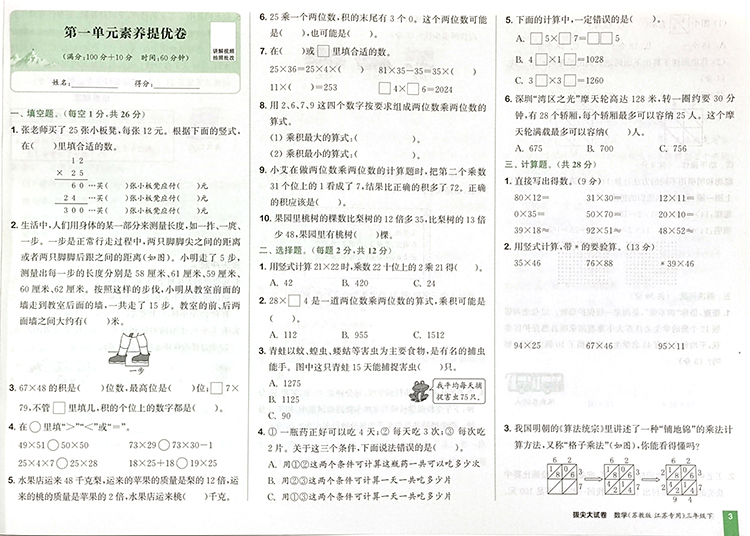 第一单元素养提优卷
(满分:100分+10分 时间:60分钟)
讲解视频
拍照批改
姓名: 得分:
一、填空题。(每空1分,共26分)
1. 张老师买了25张小板凳,每张12元。根据下面的竖式,
在( )里填合适的数。
1 2
× 2 5
6 0 …买( )张小板凳应付( )元
2 4 …买( )张小板凳应付( )元
3 0 0 …买( )张小板凳应付( )元
2. 生活中,人们用身体的某一部分来测量长度,如一拃、一庹、
一步。一步是正常行走过程中,两只脚脚尖之间的距离
或者两只脚脚后跟之间的距离(如图)。小明走了5步,
测量出每一步的长度分别是58厘米、61厘米、59厘米、
60厘米、62厘米。按照这样的步伐,小明从教室前面的
墙走到教室后面的墙,一共走了15步。教室的前、后两
面墙之间大约有( )米。
一步
3. 67×48的积是( )位数,最高位是( )位;□7×
79,不管□里填几,积的个位上的数字都是( )。
4. 在○里填“>”“<”或“=”。
49×51○50×50 73×29○73×30-1
25×4×7○25×28 18×25+18○19×25
5. 水果店运来48千克梨,运来的苹果的质量是梨的12倍,运
来的桃的质量是苹果的2倍,水果店运来桃( )千克。
6. 25乘一个两位数,积的末尾有3个0。这个两位数可能
是( ),也可能是( )。
7. 在( )或□里填合适的数。
25×36=25×4×( ) 81×35-35=35×( )
11×( )=253 □4×□6=2024
8. 用2、6、7、9这四个数字按要求组成两位数乘两位数的
算式。
(1) 乘积最大的算式:( )。
(2) 乘积最小的算式:( )。
9. 小艾在做两位数乘两位数的计算题时,把第二个乘数
31个位上的1看成了7,结果比正确的积多了72。正确
的积应该是( )。
10. 果园里桃树的棵数比梨树的12倍多35,比梨树的13倍
少48,果园里有桃树( )棵。
二、选择题。(每题2分,共12分)
1. 用竖式计算21×22时,乘数22十位上的2乘21得( )。
A. 42 B. 420 C. 24
2. 28×□4是一道两位数乘两位数的算式,乘积可能是
( )。
A. 112 B. 955 C. 1512
3. 青蛙以蚊、蝗虫、蝼蛄等害虫为主要食物,是有名的捕虫
能手。图中这只青蛙15天能捕害虫( )只。
A. 1275
B. 1125
C. 90
我平均每天捕
捉害虫75只。
4. ①一瓶药正好可以吃4天;②每天吃3次;③每次吃
2片。关于这三个条件,下面说法错误的是( )。
A. 用①②这两个条件可计算这瓶药一共可以吃多少次
B. 用②③这两个条件可计算一天一共吃多少片
C. 用①③这两个条件可计算一天一共吃多少片
5. 下面的计算中,一定错误的是( )。
A. □5×□7=□□5
B. 4□×1□=1028
C. 3□×3□=1260
6. 深圳“湾区之光”摩天轮高达128米,转一圈约要30分
钟,有28个轿厢,每个轿厢最多可以容纳25人。这个摩
天轮满载最多可以容纳( )人。
A. 675 B. 700 C. 756
三、计算题。(共28分)
1. 直接写出得数。(9分)
80×12= 31×30= 12×11=
0×35= 50×70= 20×10=
39×18≈ 92×51≈ 48×52≈
2. 用竖式计算,带*的要验算。(13分)
35×46 76×88 *39×46
94×25 67×46 95×11
3. 我国明朝的《算法统宗》里讲述了一种“铺地锦”的乘法计
算方法,又称“格子乘法”(如图),你能看得懂吗?
拔尖大试卷 数学(苏教版 江苏专用)三年级下 3